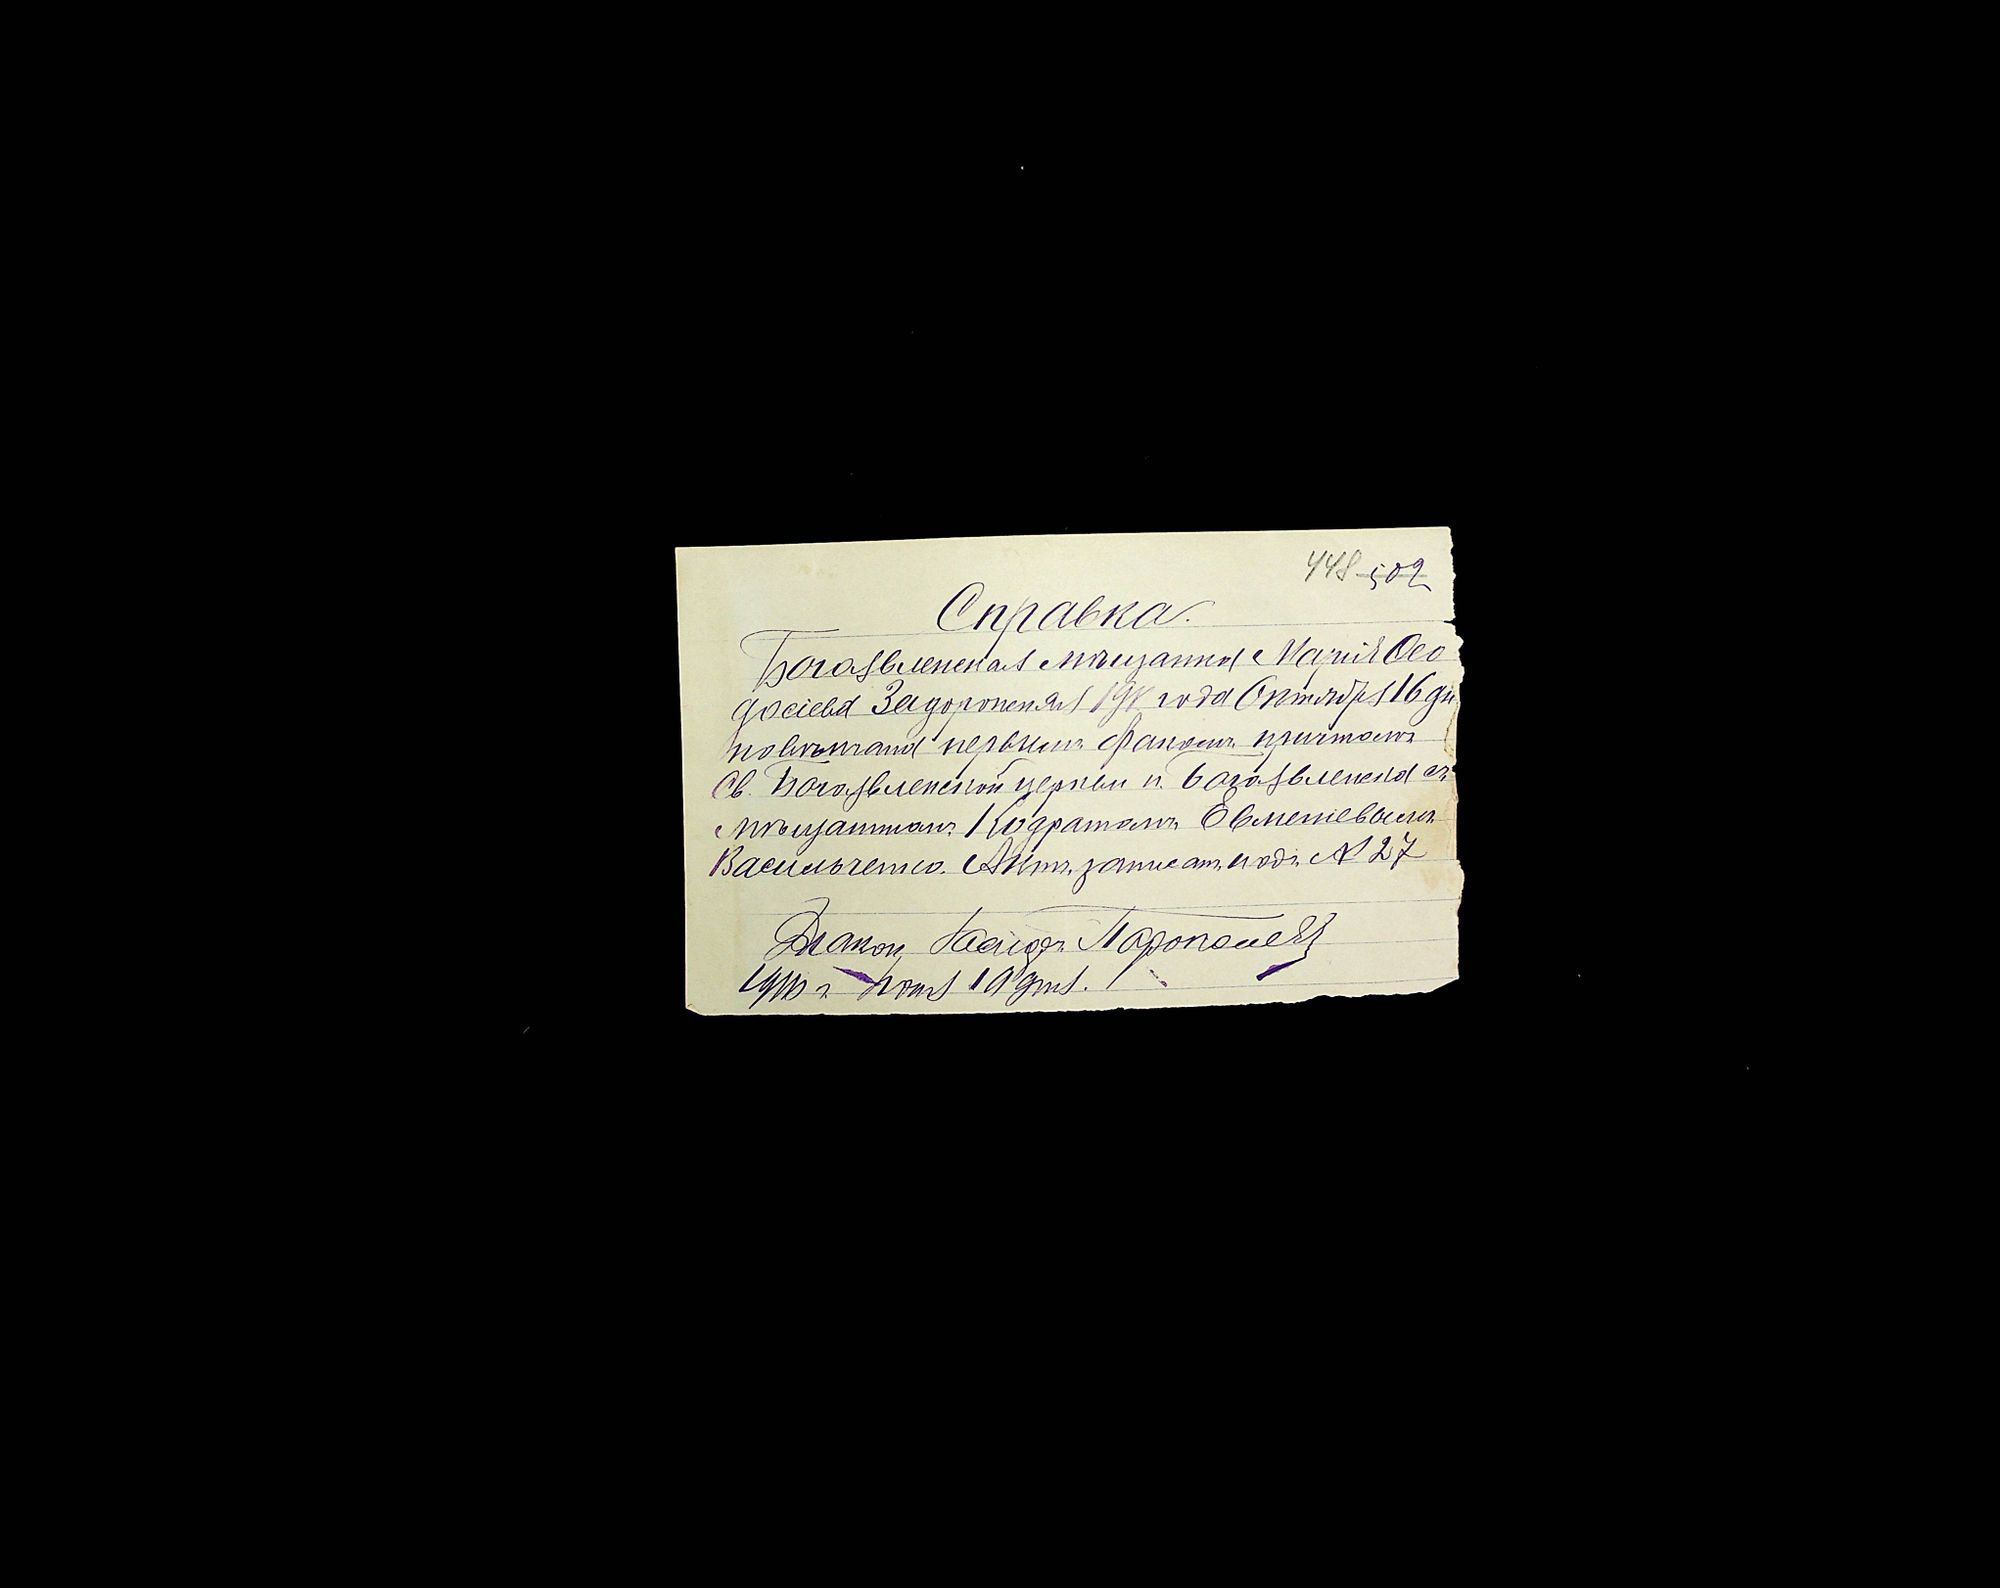 448 502
Справка.
Богоявленская мѣщанка Марія Ѳео
досіева Задорожная года Октября 16 дн
повѣнчана первымъ бракомъ причтомъ
Св. Богоявленской церкви п. Богоявленска съ
мѣщаниномъ Кодратомъ Евменіевымъ
Васильченко. Актъ записанъ подъ № 27
Діакон
19 дня.